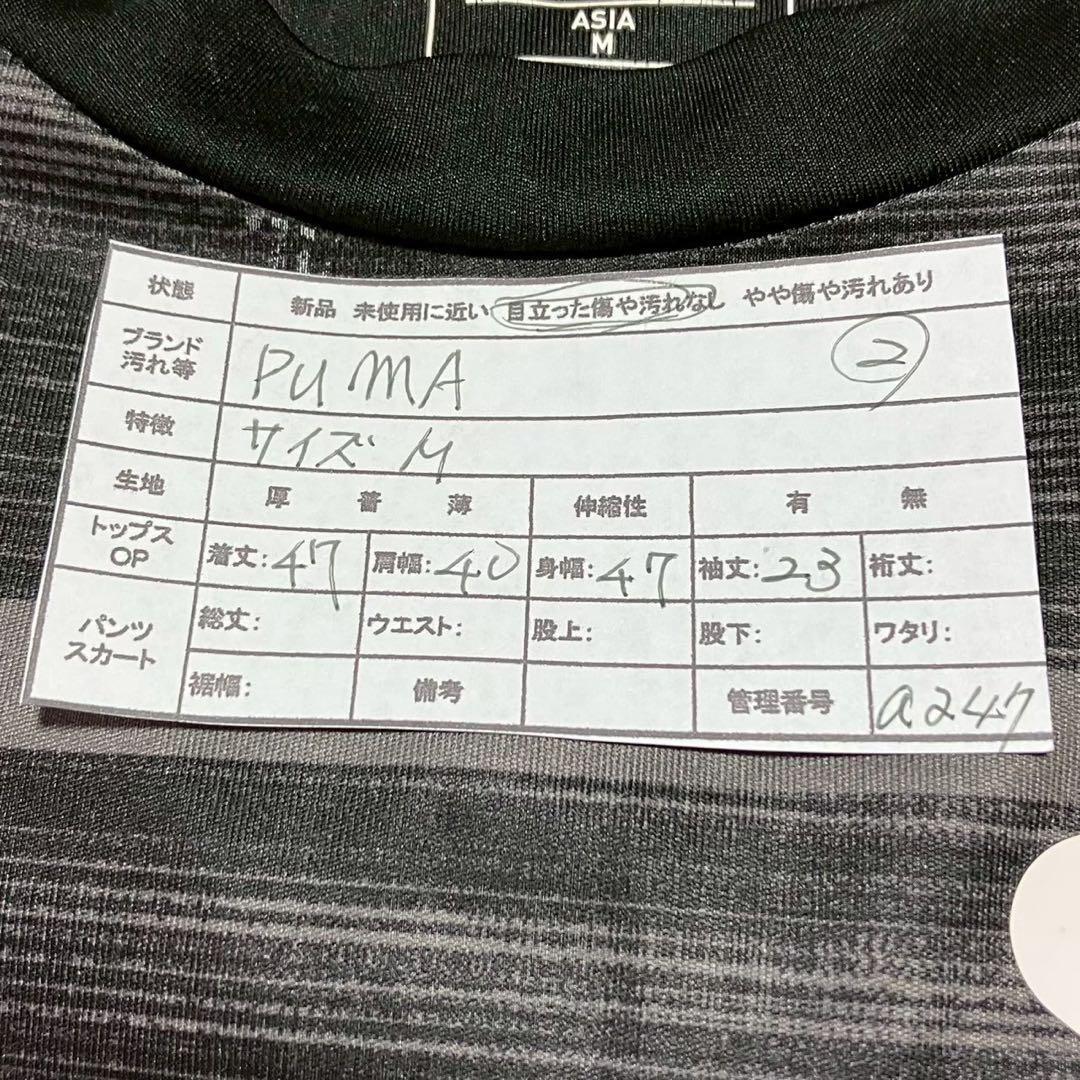 ASIA
M
状態 新品 未使用に近い 目立った傷や汚れなし やや傷や汚れあり
ブランド
汚れ等 PUMA ②
特徴 サイズ M
生地 厚 普 薄 伸縮性 有 無
トップス
OP 着丈:47 肩幅:40 身幅:47 袖丈:23 裄丈:
パンツ
スカート 総丈: ウエスト: 股上: 股下: ワタリ:
裾幅: 備考 管理番号 a247